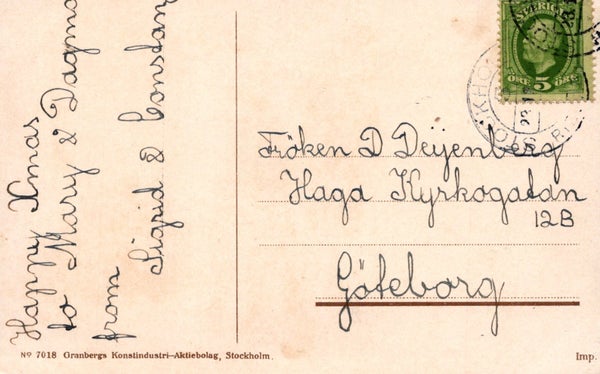 Happy Xmas
to Mary & Dagmar
from
Sigrid & Constan
SVERIGE
ÖRE 5 ÖRE
Fröken D Deijenberg
Haga Kyrkogatan
12B
Göteborg
No 7018 Granbergs Konstindustri-Aktiebolag, Stockholm.
Imp.